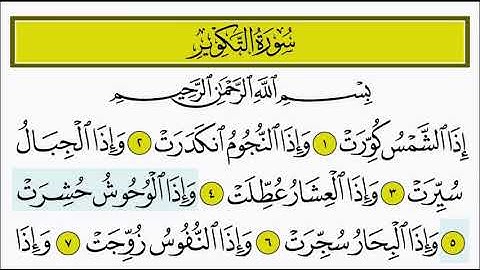 سُورَةُ التَّكْوِيرِ
بِسْمِ اللَّهِ الرَّحْمَٰنِ الرَّحِيمِ
إِذَا الشَّمْسُ كُوِّرَتْ ١ وَإِذَا النُّجُومُ انكَدَرَتْ ٢ وَإِذَا الْجِبَالُ
سُيِّرَتْ ٣ وَإِذَا الْعِشَارُ عُطِّلَتْ ٤ وَإِذَا الْوُحُوشُ حُشِرَتْ
٥ وَإِذَا الْبِحَارُ سُجِّرَتْ ٦ وَإِذَا النُّفُوسُ زُوِّجَتْ ٧ وَإِذَا